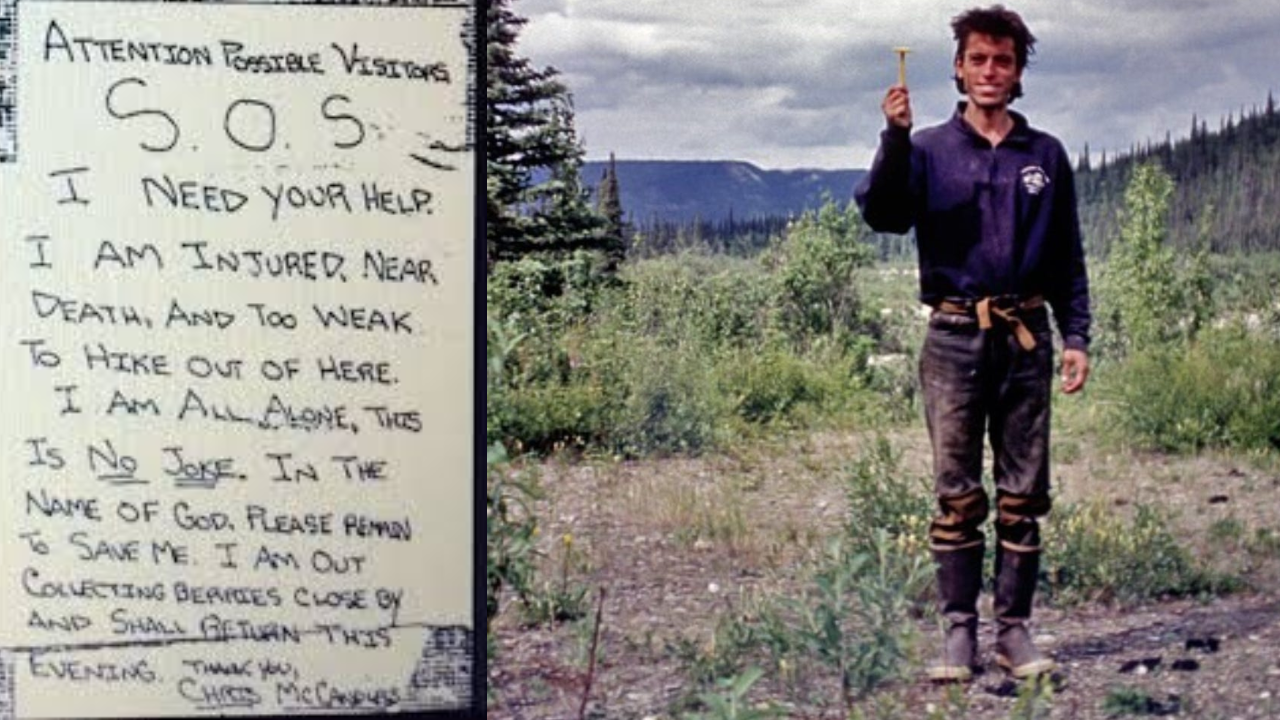 ATTENTION POSSIBLE VISITORS
S.O.S.
I NEED YOUR HELP.
I AM INJURED, NEAR
DEATH, AND TOO WEAK
TO HIKE OUT OF HERE.
I AM ALL ALONE, THIS
IS NO JOKE. IN THE
NAME OF GOD, PLEASE REMAIN
TO SAVE ME. I AM OUT
COLLECTING BERRIES CLOSE BY
AND SHALL RETURN THIS
EVENING. THANK YOU,
CHRIS MCCANDLESS